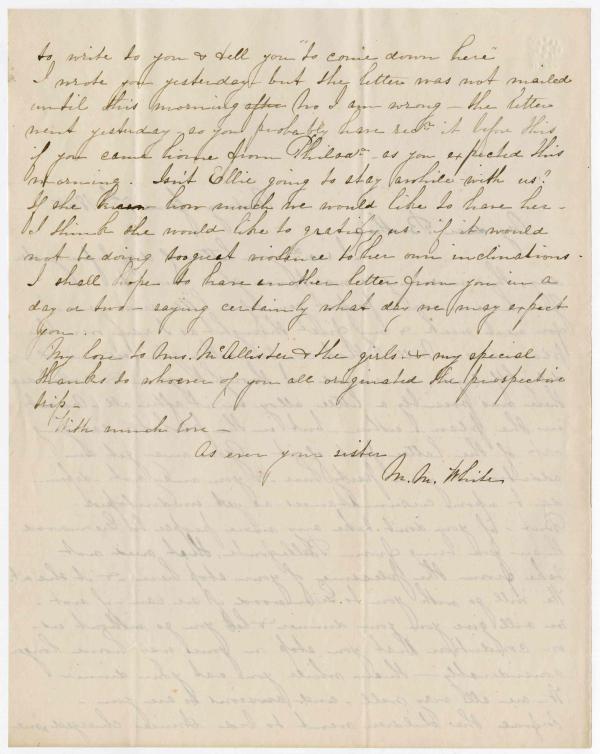 to write to you & tell you "to come down here"
I wrote you yesterday, but the letter was not mailed
until this morning after No I am wrong - the letter
went yesterday, so you probably have recd it before this
if you came home from Philada - as you expected this
morning. Isn't Ellie going to stay awhile with us?
If she knew how much we would like to have her -
I think she would like to gratify us if it would
not be doing too great violence to her own inclinations.
I shall hope to have another letter from you in a
day or two - saying certainly what day we may expect
you...
My love to Mrs. McAllister & the girls. & my special
thanks to whoever of you all originated the prospective
trip -
With much love -
As ever your sister
M. M. White